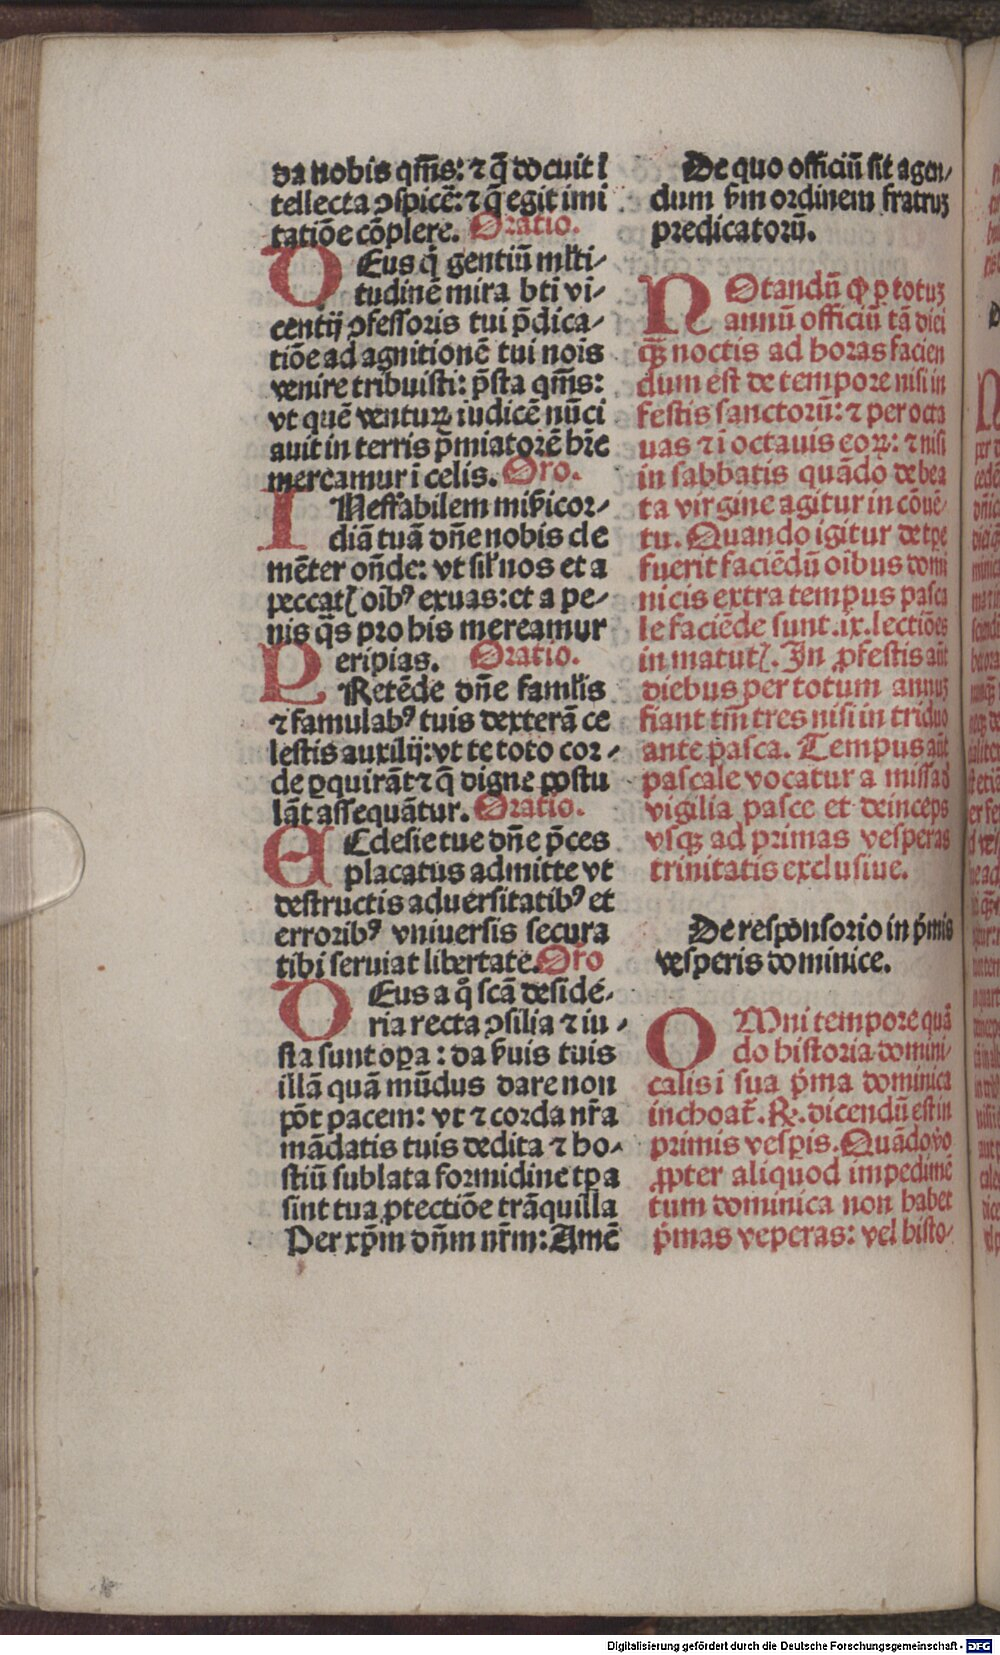 da nobis qm̄s: ⁊ q̄ docuit ī
tellecta ꝯspicē: ⁊ q̄ egit imi
tatiōe cōplere. Oratio.
DEus q̇ gentiū mĺti-
tudinē mira bti vi-
centij ꝯfessoris tui p̄dica-
tiōe ad agnitionē tui nois̄
venire tribuisti: p̄sta qm̄s:
vt quē venturꝝ iudicē nūci
auit in terris p̄miatorē bn̄e
mereamur ī celis. Oro.
INeffabilem mis̄icor-
diā tuā dn̄e nobis cle
mēter on̄de: vt siĺ nos et a
peccatꝭ oībꝰ exuas: et a pe-
nis q̄s pro his meremur
eripias. Oratio.
PRetēde dn̄e famĺis
⁊ famulabꝰ tuis dexterā ce
lestis auxilij: vt te toto cor-
de ꝑquirāt ⁊ q̄ digne postu
lāt assequātur. Oratio.
ECclesie tue dn̄e p̄ces
placatus admitte vt
destructis aduersitatibꝰ et
erroribꝰ vniuersis secura
tibi seruiat libertate. Oro
DEus a q̊ scā deside-
ria recta ꝯsilia ⁊ iu-
sta sunt oꝑa: da ẜuis tuis
illā quā mūdus dare non
pōt pacem: vt ⁊ corda nr̄a
mādatis tuis dedita ⁊ ho-
stiū sublata formidine tꝑa
sint tua ꝓtectiōe trāquilla
Per xp̄m dn̄m nr̄m: Amē
De quo officiū sit agen-
dum ẜm ordinem fratruꝫ
predicatorū.
NOtandū ꝙ ꝑ totuꝫ
annū officiū tā diei
qꝫ̄ noctis ad horas facien
dum est de tempore nisi in
festis sanctorū: ⁊ per octa
uas ⁊ ī octauis eorꝝ: ⁊ nisi
in sabbatis quādo de bea
ta virgine agitur in cōuē-
tu. Quando igitur de tꝑe
fuerit faciēdū oībus domi
nicis extra tempus pasca
le faciēde sunt .ix. lectiōes
in matutꝭ. In ꝓfestis aūt
diebus per totum annuꝫ
fiant tm̄ tres nisi in triduo
ante pasca. Tempus aūt
pascale vocatur a missa d
vigilia pasce et deinceps
vsqꝫ ad primas vesperas
trinitatis exclusiue.
De responsorio in p̄mis
vesperis dominice.
OMni tempore quā
do historia domini-
calis ī sua p̄ma dominica
inchoat̄. ℞. dicendū est in
primis vesꝑis. Quādo v̊o
ꝓpter aliquod impedimē
tum dominica non habet
p̄mas veperas: vel histo-
Digitalisierung gefördert durch die Deutsche Forschungsgemeinschaft - DFG